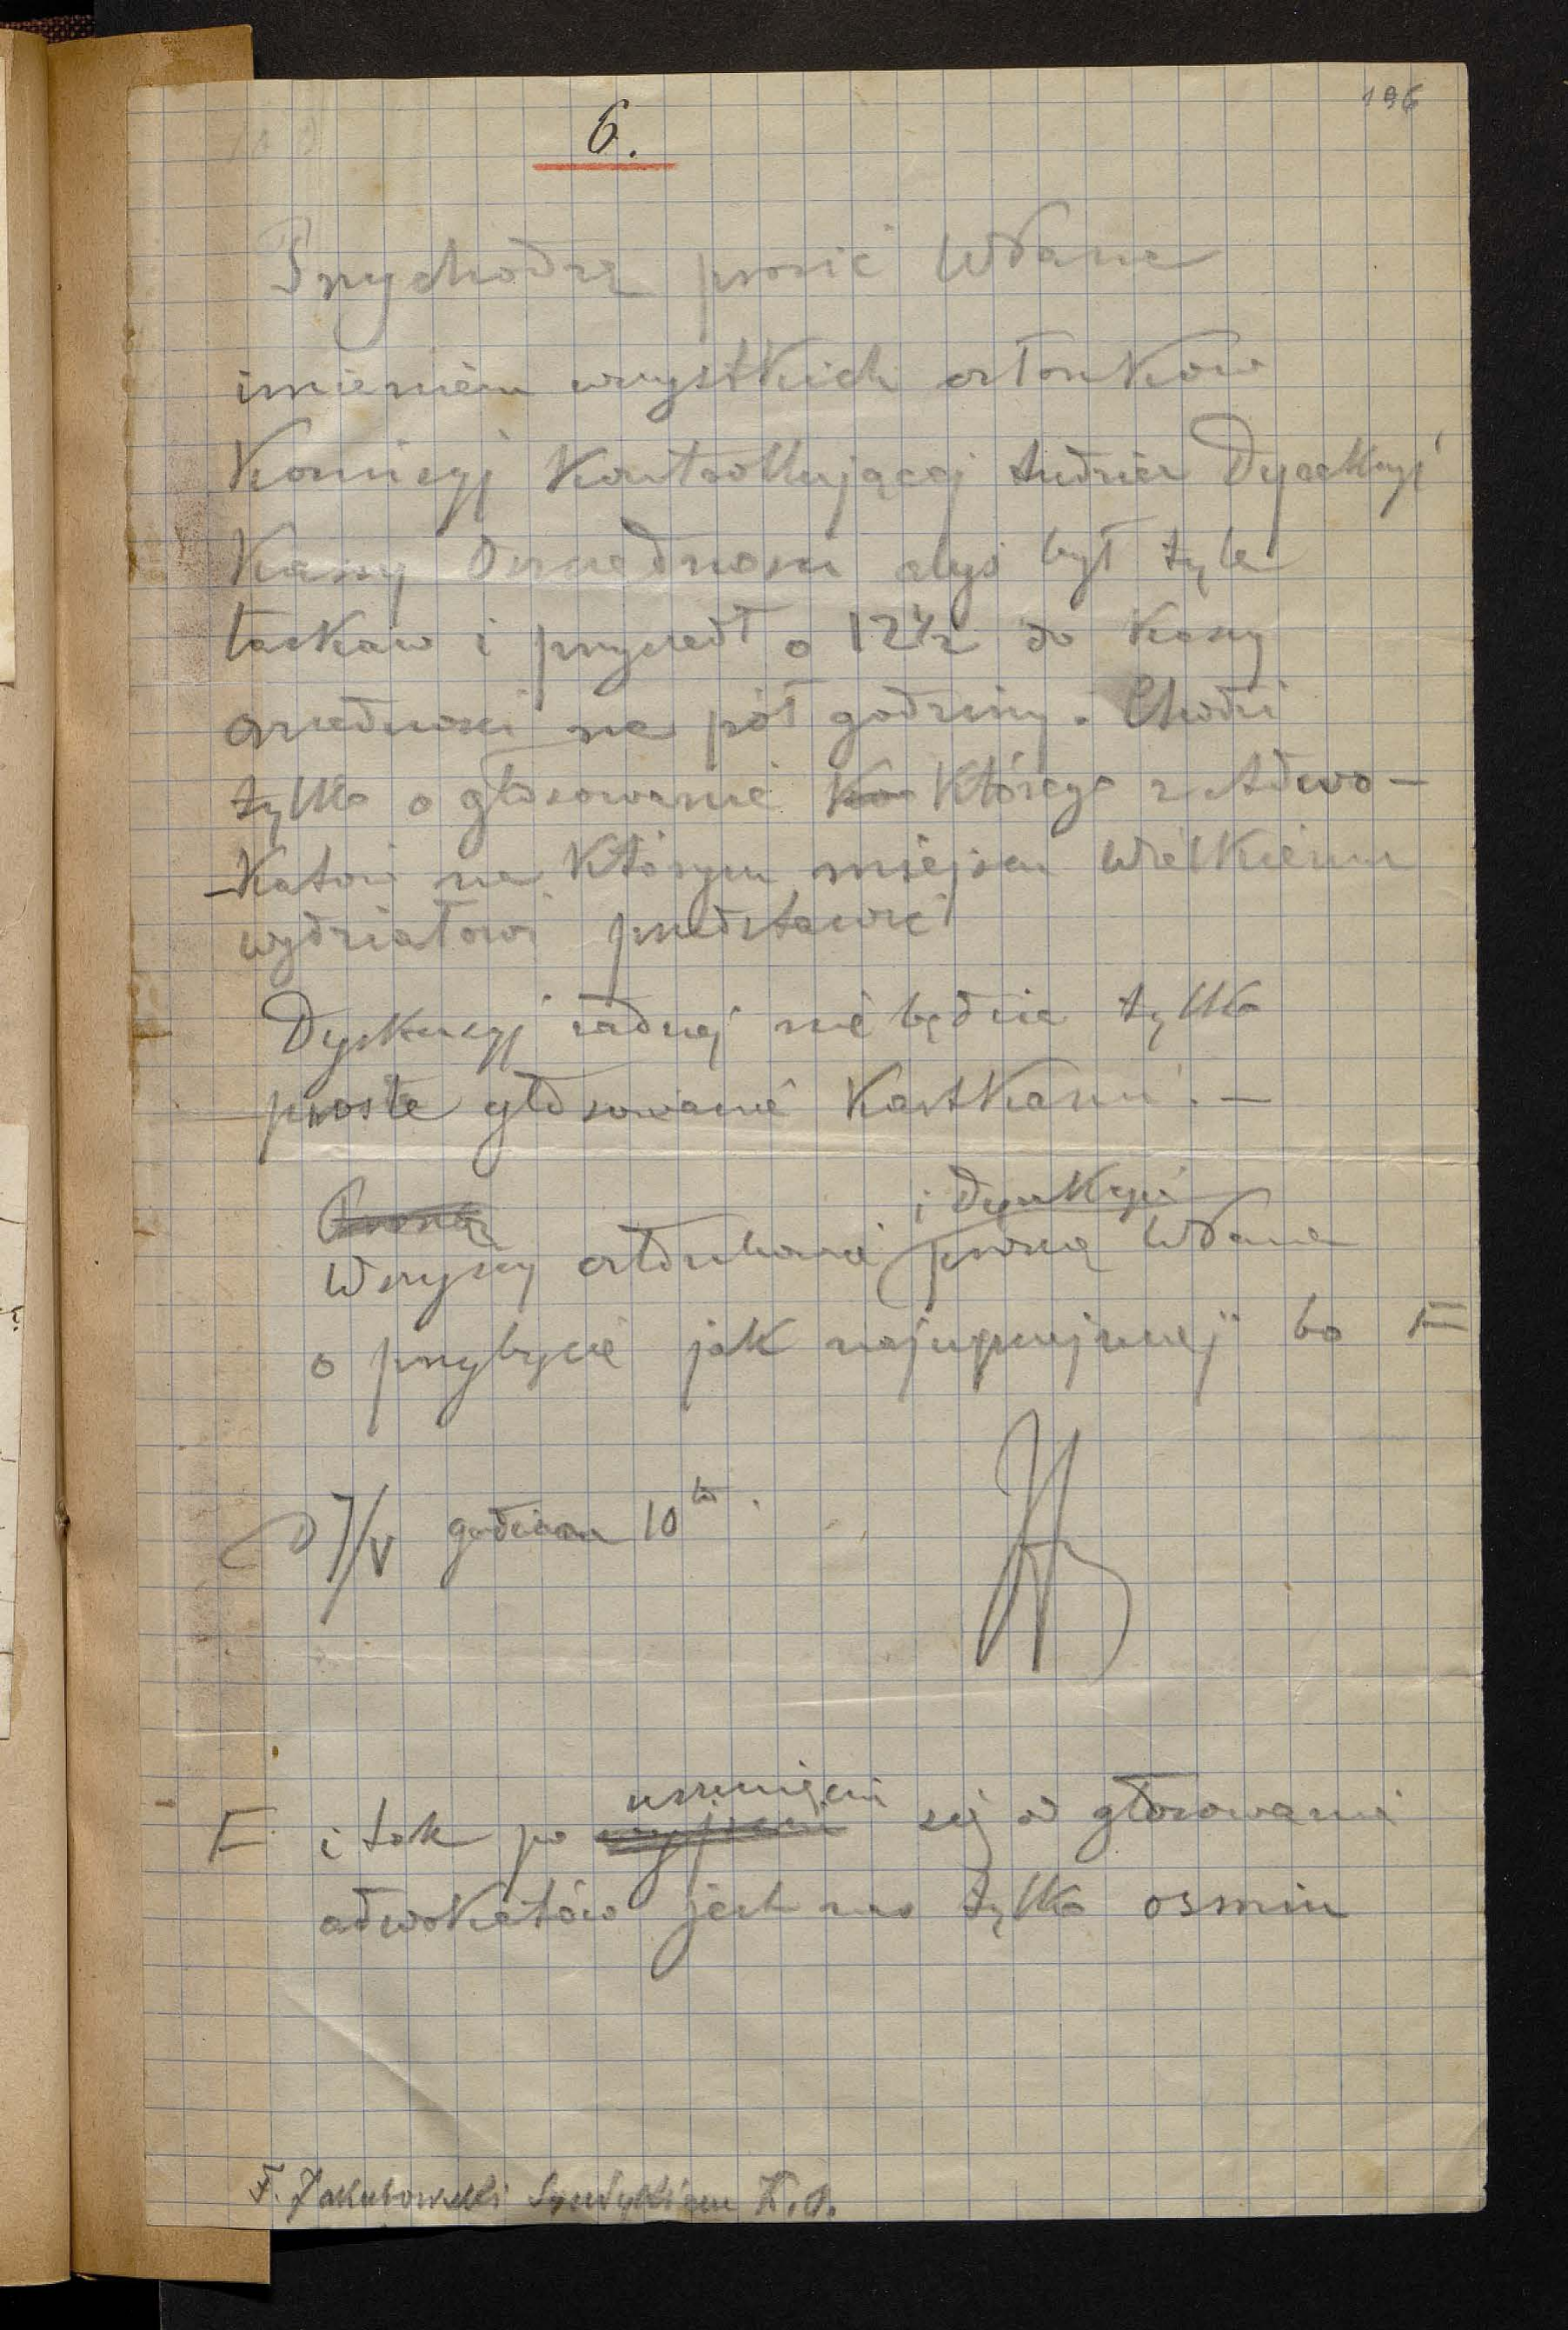 196
6.
Przychodzę prosić Wdana
imieniem wszystkich członków
Komisyj Kontrollującej tudzież Dyrekcyi
Kasy Oszczędnosci abyś był tyle
łaskaw i przyszedł o 12 1/2 do Kasy
oszczednosci na pół godziny. Chodzi
tylko o głosowanie Ko którego z Adwo-
-katów na którym miejscu Wielkiemu
wydziałowi przedstawić
Dyskusyj żadnej nie będzie tylko
proste głosowanie Kartkami. —
Proszą
i Dyrekcyi
Wszyscy członkowie proszą Wdana
o przybycie jak najuprzejmiej bo F
D 7/V godzina 10ta.
F i tak po usunięciu się od głosowania
adwokatów jest nas tylko osmiu
F. Jakubowski Syndykiem K.O.